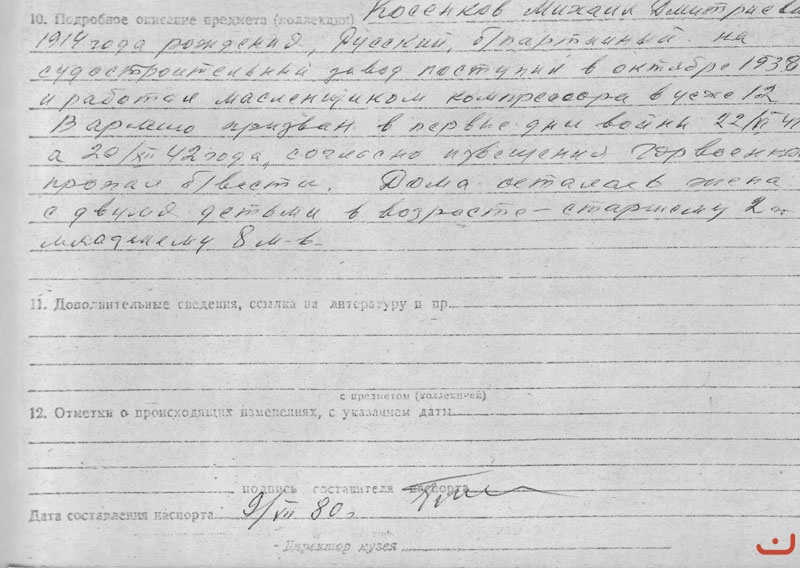 10. Подробное описание предмета (коллекции) Косенков Михаил Дмитриеви
1914 года рождения, Русский, б/партийный. на
судостроительный завод поступил в октябре 1938
и работал масленщиком компрессора в цехе 12
В армию призван в первые дни войны 22/VI 41
а 20/XII 42 года, согласно извещения Горвоенко
пропал б/вести. Дома осталась жена
с двумя детьми в возрасте – старшему 2
младшему 8 м-в.
11. Дополнительные сведения, ссылка на литературу и пр.
с предметом (коллекцией)
12. Отметки о происходящих изменениях, с указанием даты
подпись составителя паспорта
Дата составления паспорта 9/VII 80 г
Директор музея